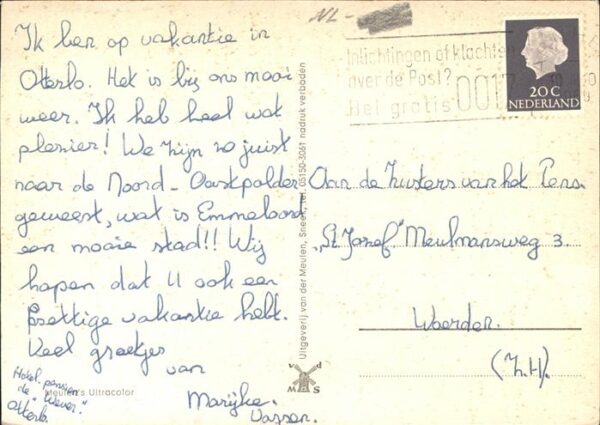 Ik ben op vakantie in
Otterlo. Het is bij ons mooi
weer. Ik heb heel wat
plezier! We zijn zo juist
naar de Noord-Oostpolder
geweest, wat is Emmeloord
een mooie stad!! Wij
hopen dat U ook een
prettige vakantie hebt.
Veel groetjes
van
Marijke
Vossen.
Hotel-pension
de "Wever".
Otterlo.
Meulen's Ultracolor
Uitgeverij van der Meulen, Sneek, Tel. 05150-3061 nadruk verboden
M S
NL-
Inlichtingen of klachten
over de Post?
Bel gratis 0017
20 C
NEDERLAND
Aan de Zusters van het Pens.
"St. Jozef." Meulmansweg 3.
Woerden.
(Z.H).